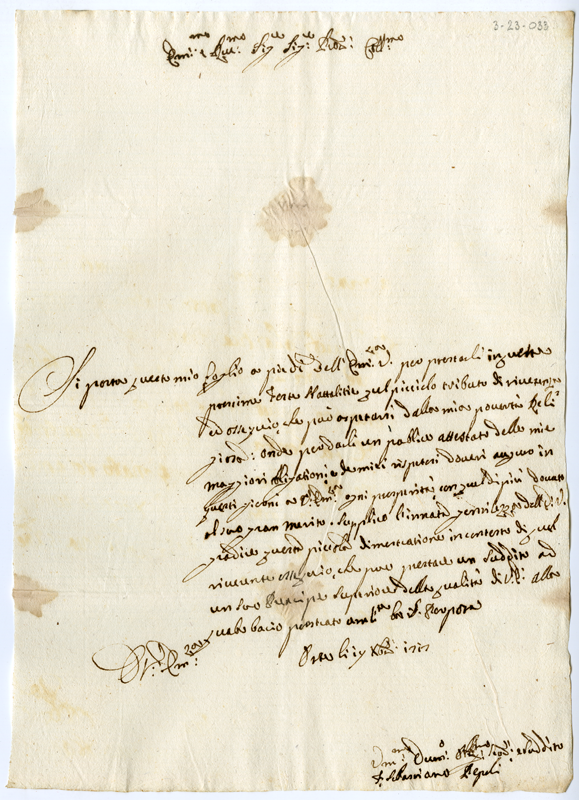 3-23-033
Em.mo e Rev.mo Sig.re Sig.re Pro.ne Coll.mo
Si porta questo mio foglio a piedi dell' Em.za V. per prestarli in queste
prossime Feste Nattalitie quel picciolo tributo di riverenza
ed ossequio, che può aspettarsi dalla mia povertà Reli
giosa: onde per darli un publico attestato delle mie
maggiori obligationi e de miei rispetosi doveri auguro in
questi giorni a V. Em.za ogni prosperità, con quel di più dovuto
al suo gran merito. Supplico l'innata dell' E. V.
gradire questa picciola dimostratione in contesto di quel
riverente ossequio, che può prestare un suddito ad
un suo Prencipe Superiore della qualità di V. E. alla
quale bacio prostrato la S. Porpora
Di V. Em.za
Orte li
Um.mo Suddito
F. Sebastiano Pepoli